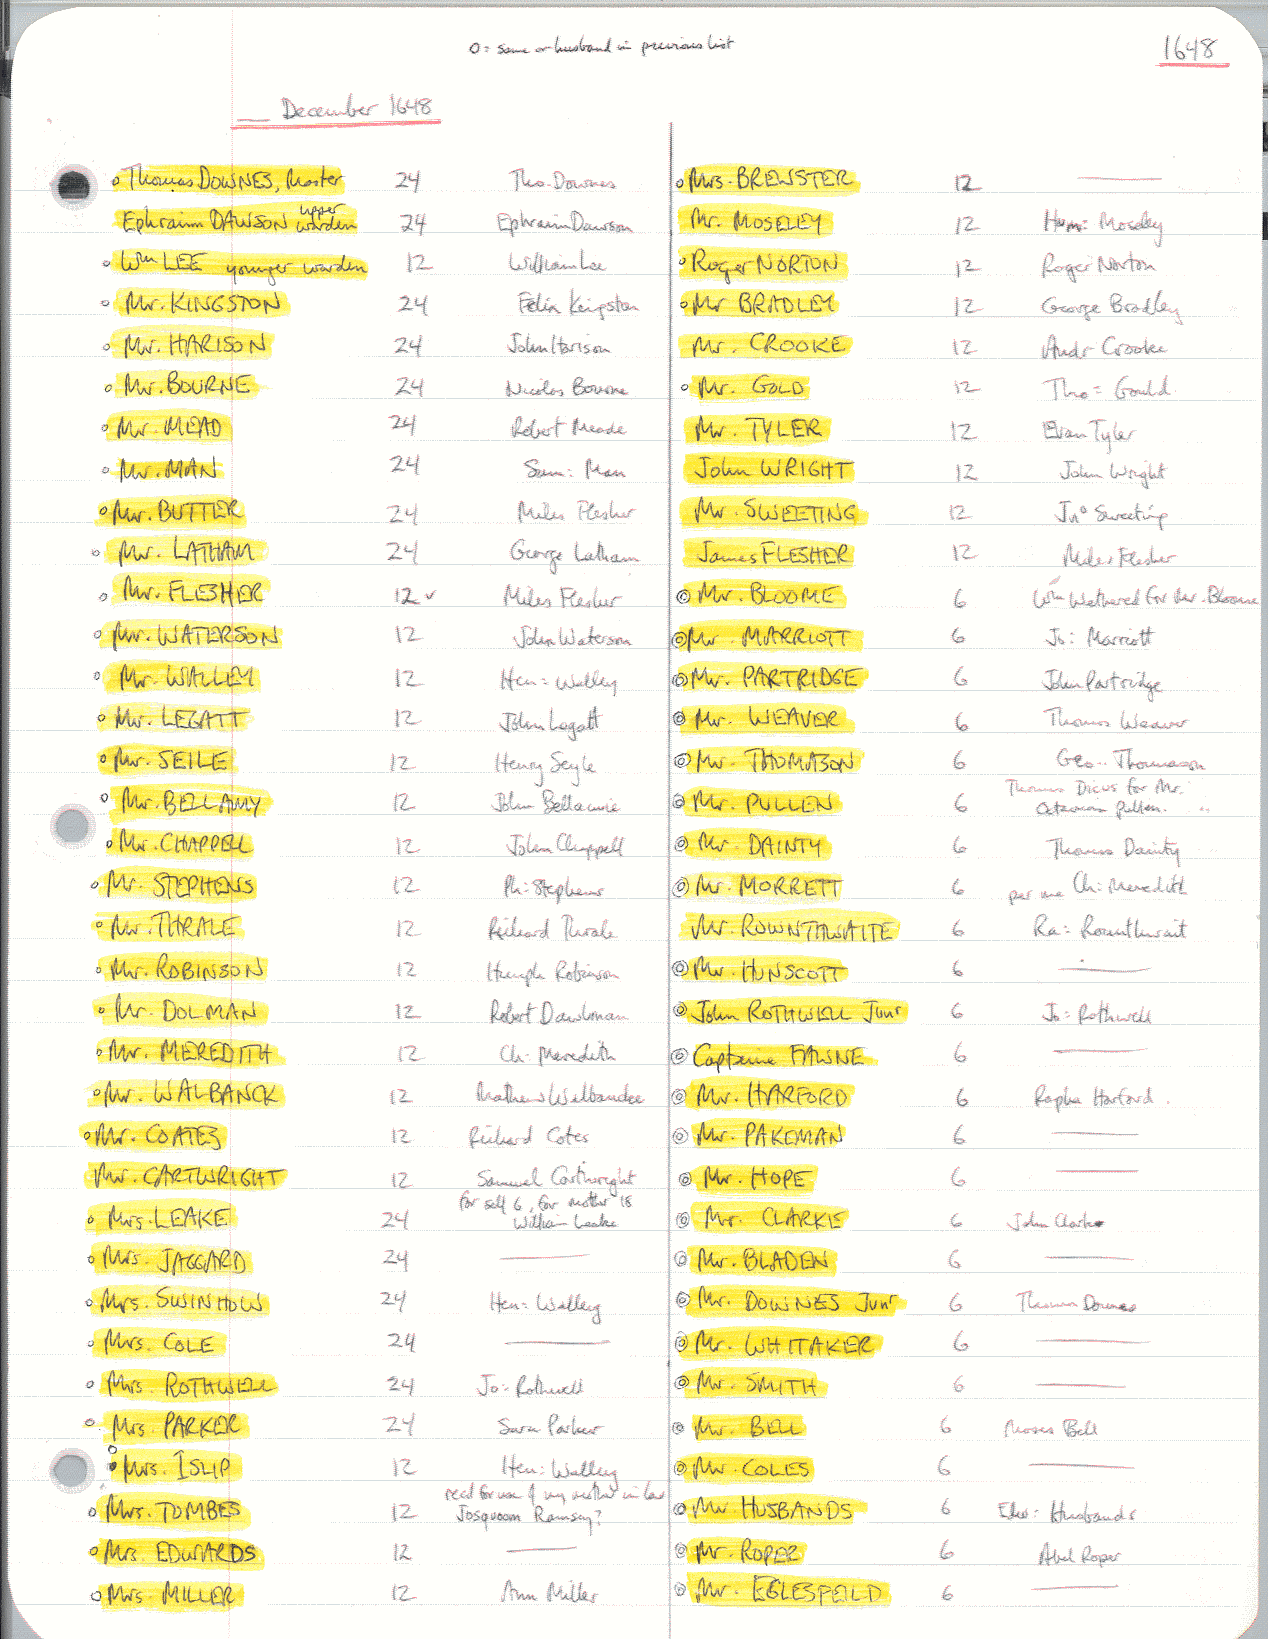 O = same or husband in previous list
1648
December 1648
o Thomas DOWNES, Master 24 Tho. Downes
Ephraim DAWSON upper warden 24 Ephraim Dawson
o Wm LEE younger warden 12 William Lee
o Mr. KINGSTON 24 Felix Kingston
o Mr. HARISON 24 John Harison
o Mr. BOURNE 24 Nicolas Bourne
o Mr. MEAD 24 Robert Meade
o Mr. MAN 24 Sam: Man
o Mr. BUTTER 24 Miles Flesher
o Mr. LATHAM 24 George Latham
o Mr. FLESHER 12 ✓ Miles Flesher
o Mr. WATERSON 12 John Waterson
o Mr. WALLEY 12 Hen: Walley
o Mr. LEGATT 12 John Legatt
o Mr. SEILE 12 Henry Seyle
o Mr. BELLAMY 12 John Bellamie
o Mr. CHAPPELL 12 John Chappell
o Mr. STEPHENS 12 Ph: Stephens
o Mr. THRALE 12 Richard Thrale
o Mr. ROBINSON 12 Humph Robinson
o Mr. DOLMAN 12 Robert Dawlman
o Mr. MEREDITH 12 Ch: Meredith
o Mr. WALBANCK 12 Mathew Walbancke
o Mr. COATES 12 Richard Cotes
Mr. CARTWRIGHT 12 Samuel Cartwright
o Mrs. LEAKE 24 for self 6, for mother 18
William Leake
o Mrs. JAGGARD 24 ———
o Mrs. SWINHOW 24 Hen: Walley
o Mrs. COLE 24 ———
o Mrs. ROTHWELL 24 Jo: Rothwell
o Mrs. PARKER 24 Sara Parker
o Mrs. ISLIP 12 Hen: Walley
o Mrs. TOMBES 12 recd for use of my mother in law
Ramsey?
o Mrs. EDWARDS 12 ———
o Mrs. MILLER 12 Ann Miller
o Mrs. BREWSTER 12 ———
Mr. MOSELEY 12 Hum: Moseley
o Roger NORTON 12 Roger Norton
o Mr BRADLEY 12 George Bradley
Mr. CROOKE 12 Andr Crooke
o Mr. GOLD 12 Tho = Gould
Mr. TYLER 12 Evan Tyler
John WRIGHT 12 John Wright
Mr. SWEETING 12 Jno Sweeting
James FLESHER 12 Miles Flesher
◎ Mr. BLOOME 6 Wm Wethered for Mr. Bloome
◎ Mr. MARRIOTT 6 Jo: Marriott
◎ Mr. PARTRIDGE 6 John Partridge
◎ Mr. WEAVER 6 Thomas Weaver
◎ Mr. THOMASON 6 Geo.. Thomason
◎ Mr. PULLEN 6 Thomas Dicus for Mr.
Octavian Pullen.
◎ Mr. DAINTY 6 Thomas Dainty
◎ Mr. MORRETT 6 per me Ch: Meredith
Mr. ROWNTHWAITE 6 Ra: Rounthwait
◎ Mr. HUNSCOTT 6 ———
◎ John ROTHWELL Junr 6 Jo: Rothwell
◎ Captaine FAWNE 6 ———
◎ Mr. HARFORD 6 Rapha Harford.
◎ Mr. PAKEMAN 6 ———
◎ Mr. HOPE 6 ———
◎ Mr. CLARKE 6 John Clarke
◎ Mr. BLADEN 6 ———
◎ Mr. DOWNES Junr 6 Thomas Downes
◎ Mr. WHITAKER 6 ———
◎ Mr. SMITH 6 ———
◎ Mr. BELL 6 Moses Bell
◎ Mr. COLES 6 ———
◎ Mr HUSBANDS 6 Edw: Husbands
◎ Mr. ROPER 6 Abel Roper
◎ Mr. EGLESFEILD 6 ———